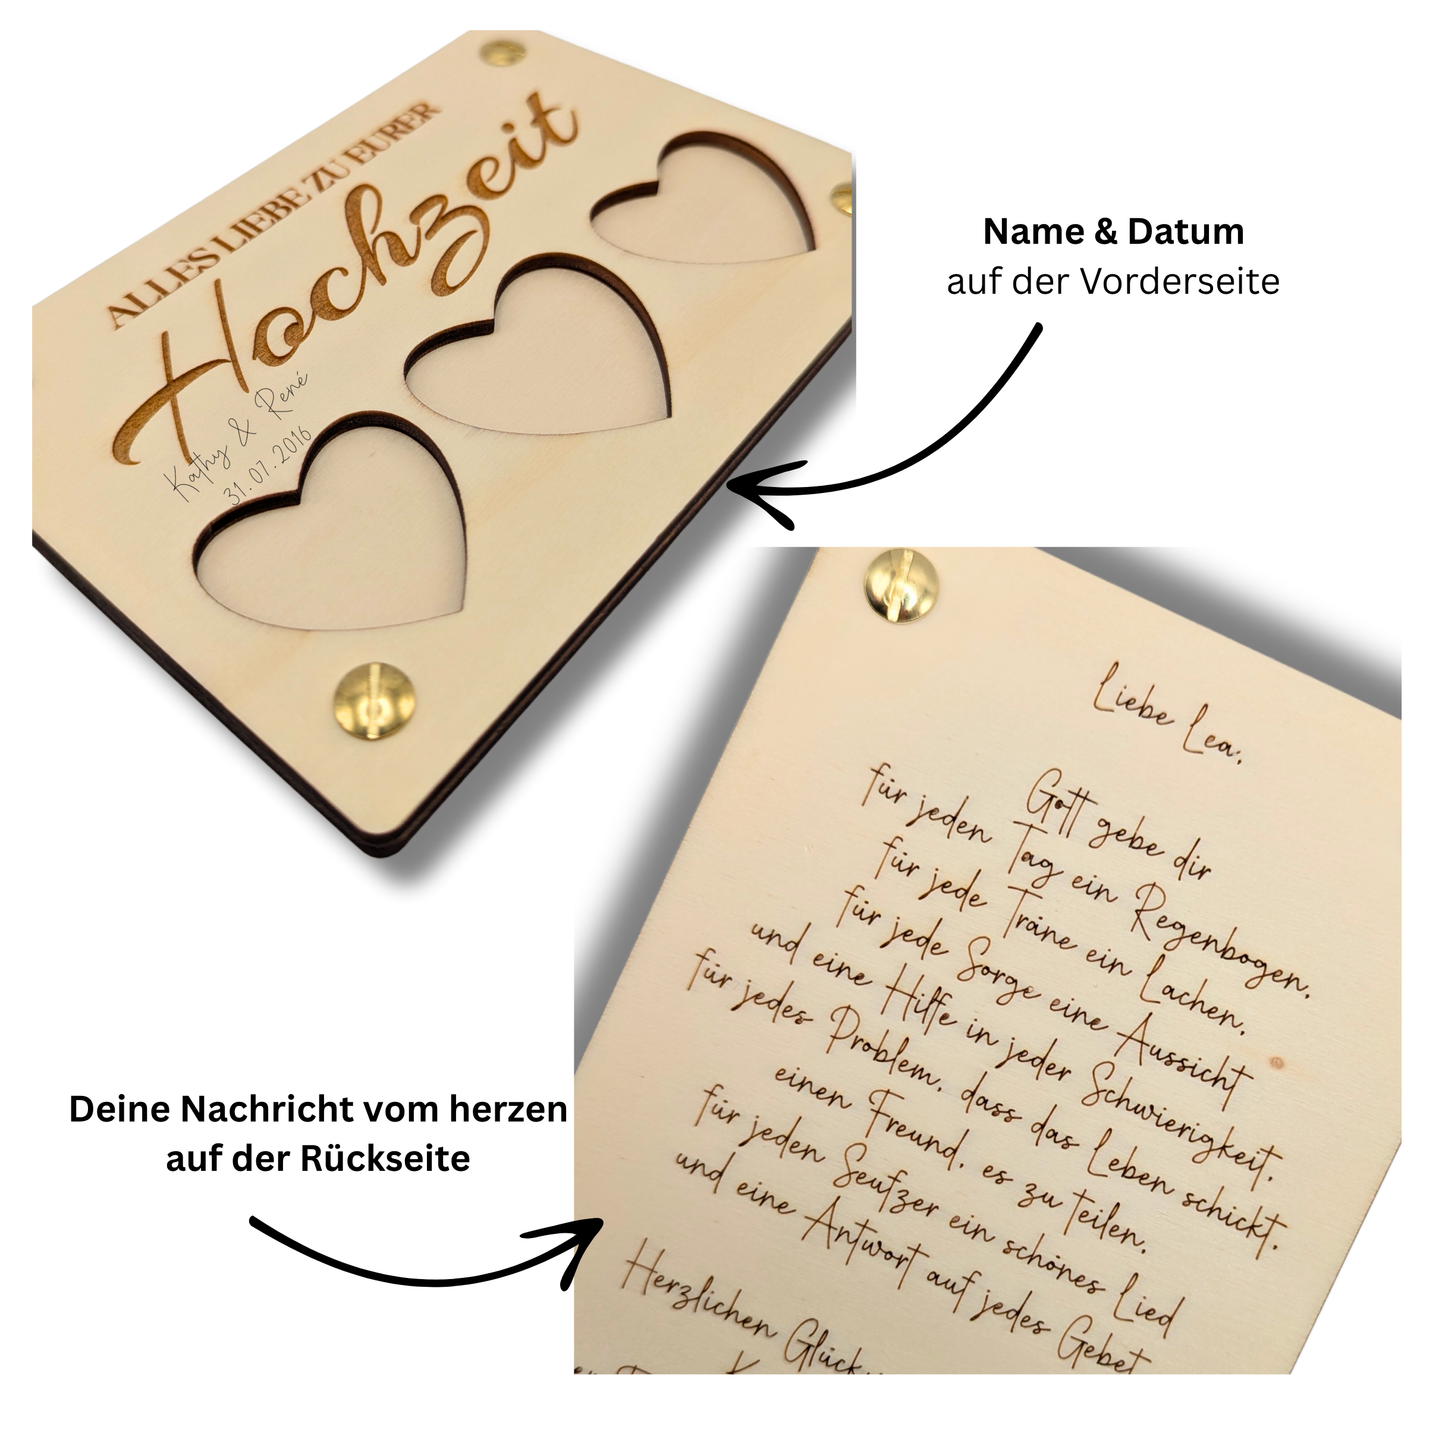 ALLES LIEBE ZU EURER
Hochzeit
Kathy & René
31.07.2016
Name & Datum
auf der Vorderseite
Liebe Lea,
Gott gebe dir
für jeden Tag ein Regenbogen,
für jede Träne ein Lachen,
für jede Sorge eine Aussicht
und eine Hilfe in jeder Schwierigkeit,
für jedes Problem, dass das Leben schickt,
einen Freund, es zu teilen,
für jeden Seufzer ein schönes Lied
und eine Antwort auf jedes Gebet
Herzlichen
Deine Nachricht vom herzen
auf der Rückseite